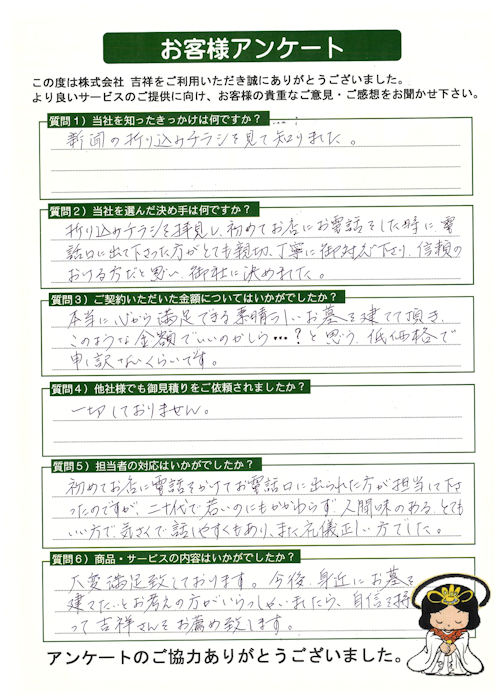 お客様アンケート
この度は株式会社 吉祥をご利用いただき誠にありがとうございました。
より良いサービスのご提供に向け、お客様の貴重なご意見・ご感想をお聞かせ下さい。
質問1）当社を知ったきっかけは何ですか？
新聞の折り込みチラシを見て知りました。
質問2）当社を選んだ決め手は何ですか？
折り込みチラシを拝見し、初めてお店にお電話をした時に、電
話口に出て下さった方がとても親切、丁寧に御対応下さり、信頼の
おける方だと思い、御社に決めました。
質問3）ご契約いただいた金額についてはいかがでしたか？
本当に心から満足できる素晴らしいお墓を建てて頂き、
このような金額でいいのかしら…？と思う、低価格で
申し訳ないくらいです。
質問4）他社様でも御見積りをご依頼されましたか？
一切しておりません。
質問5）担当者の対応はいかがでしたか？
初めてお店に電話をかけてお電話口に出られた方が担当して下さ
ったのですが、二十代で若いのにもかかわらず、人間味のある、とても
いい方で気さくで話しやすくもあり、また礼儀正しい方でした。
質問6）商品・サービスの内容はいかがでしたか？
大変満足致しております。今後、身近にお墓を
建てたいとお考えの方がいらっしゃいましたら、自信を持
って吉祥さんをお薦め致します。
アンケートのご協力ありがとうございました。